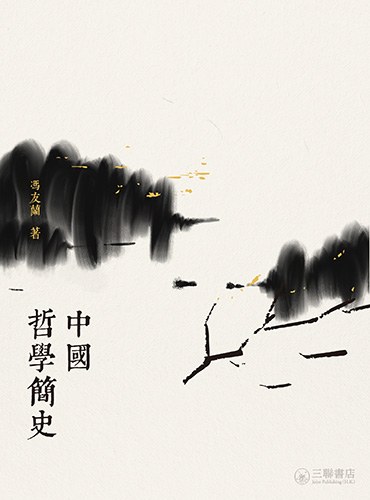 馮友蘭 著
中國
哲學簡史
三聯書店
Joint Publishing (H.K.)